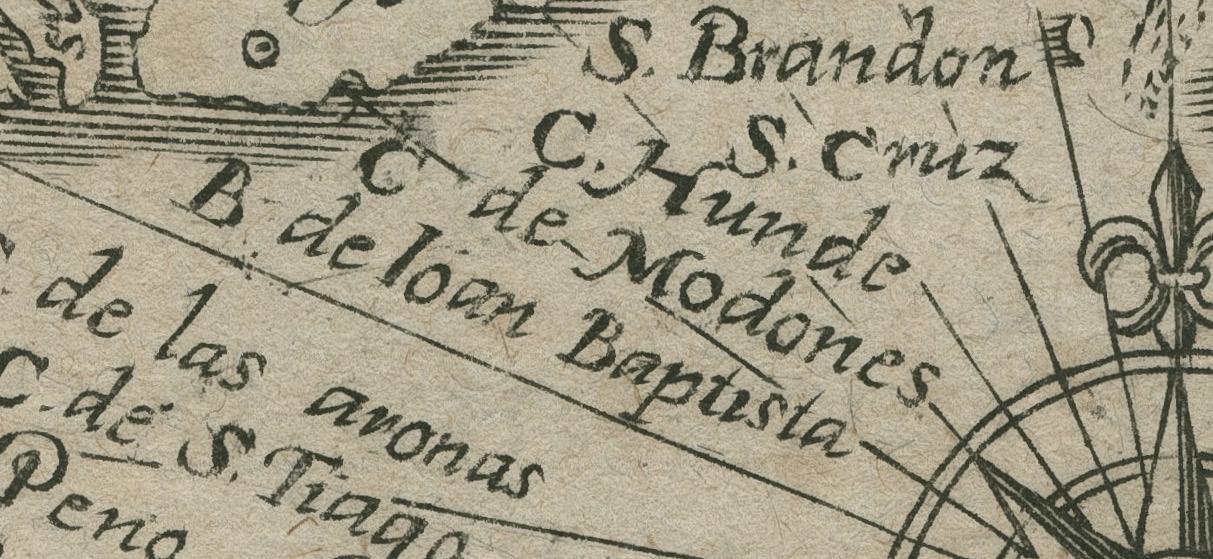 S. Brandon
S. Cruz
C. Hunde
C de Modones
B. de Ioan Baptista
de las aronas
C. de S. Tiago